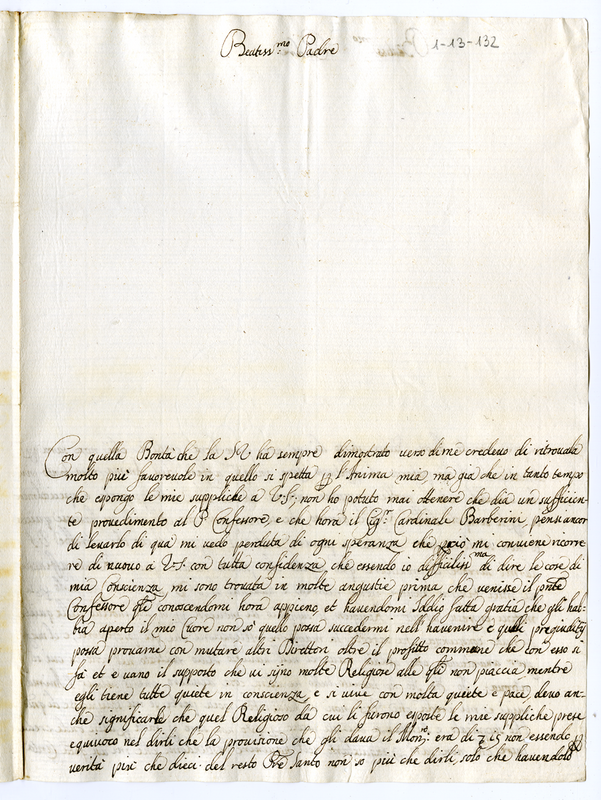 Beatiss.mo Padre
1-13-132
Con quella Bontà che la M. ha sempre dimostrato verso di me credevo di ritrovarla
molto più favorevole in quello si spetta l'Anima mia, ma già che in tanto tempo
che espongo le mie suppliche a V.S.; non ho potuto mai obtenere che dia un sufficien-
te provedimento al P. Confessore, e che hora il Sig.r Cardinale Barberini pensi ancor
di levarlo di qua mi vedo perduta di ogni speranza che perciò mi conviene ricorre
re di nuovo a V.S. con tutta confidenza, che essendo io difficiliss.ma di dire le cose di
mia Conscienza mi sono trovata in molte angustie prima che venisse il pnte
Confessore qle conoscendomi hora appieno, et havendomi Iddio fatta gratia che gli hab-
bia aperto il mio Cuore non so quello possa succedermi nell'havenire e quali pregiuditij
possa provarne con mutare altri Direttori oltre il profitto commune che con esso si
fà et è vano il supposto che vi siino molte Religiose alle qli non piaccia mentre
egli tiene tutte quiete in conscienza, e si vive con molta quiete e pace, devo an-
che significarle che quel Religioso da cui li furono esposte le mie suppliche prese
equivoco nel dirli che la provisione che gli dava il Mon.ro era di 15 non essendo
verità più che dieci. del resto Pre Santo non so più che dirli, solo che havendolo